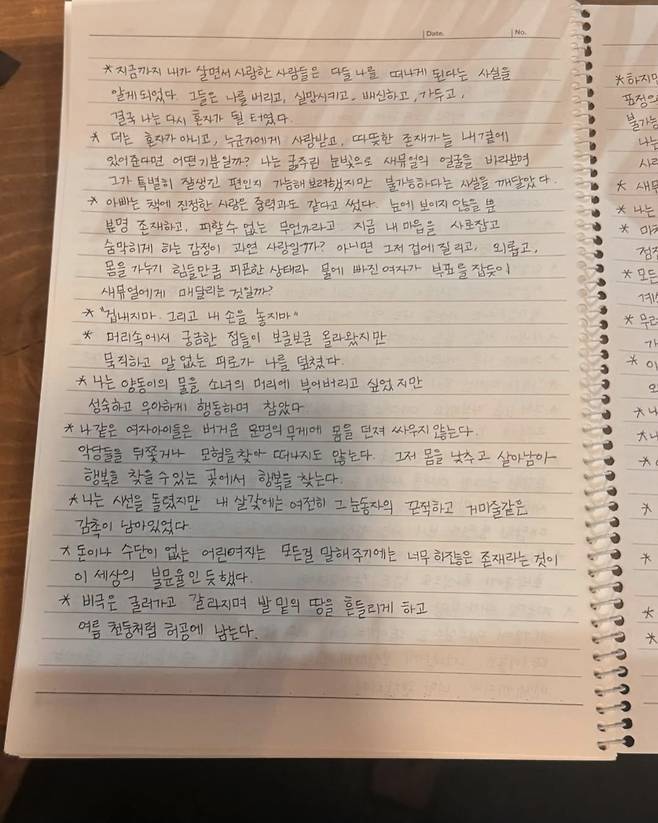 Date.
No.
* 지금까지 내가 살면서 사랑한 사람들은 다들 나를 떠나게 된다는 사실을
알게되었다. 그들은 나를 버리고, 실망시키고, 배신하고, 가두고,
결국 나는 다시 혼자가 될 터였다.
* 더는 혼자가 아니고, 누군가에게 사랑받고, 따뜻한 존재가 늘 내 곁에
있어준다면 어떤기분일까? 나는 굶주린 눈빛으로 새뮤얼의 얼굴을 바라보며
그가 특별히 잘생긴 편인지 가늠해보려했지만 불가능하다는 사실을 깨달았다.
* 아빠는 책에 진정한 사랑은 중력과도 같다고 썼다. 눈에 보이지 않을 뿐
분명 존재하고, 피할수 없는 무언가라고. 지금 내 마음을 사로잡고
숨막히게 하는 감정이 과연 사랑일까? 아니면 그저 겁에 질리고, 외롭고,
몸을 가누기 힘들만큼 피곤한 상태라 물에 빠진 여자가 부표를 잡듯이
새뮤얼에게 매달리는 것일까?
* "겁내지마. 그리고 내 손을 놓지마"
* 머리속에서 궁금한 점들이 보글보글 올라왔지만
묵직하고 말 없는 피로가 나를 덮쳤다.
* 나는 양동이의 물을 소녀의 머리에 부어버리고 싶었지만
성숙하고 우아하게 행동하며 참았다
* 나 같은 여자아이들은 버거운 운명의 무게에 몸을 던져 싸우지 않는다.
악당들을 뒤쫓거나 모험을 찾아 떠나지도 않는다. 그저 몸을 낮추고 살아남아
행복을 찾을 수 있는 곳에서 행복을 찾는다.
* 나는 시선을 돌렸지만 내 살갗에는 여전히 그 눈동자의 끈적하고 거미줄같은
감촉이 남아있었다
* 돈이나 수단이 없는 어린여자는 모든걸 말해주기에는 너무 하찮은 존재라는 것이
이 세상의 불문율인 듯했다.
* 비극은 굴러가고 갈라지며 발 밑의 땅을 흔들리게 하고
여름 천둥처럼 허공에 남는다.
* 하지만
표정의
불가능
나는
사라
* 새뮤
* 나는
* 마치
점점
* 모든
계속
* 무려
가
* 이
외
* 나
* 나
*
*
*
*
*
*